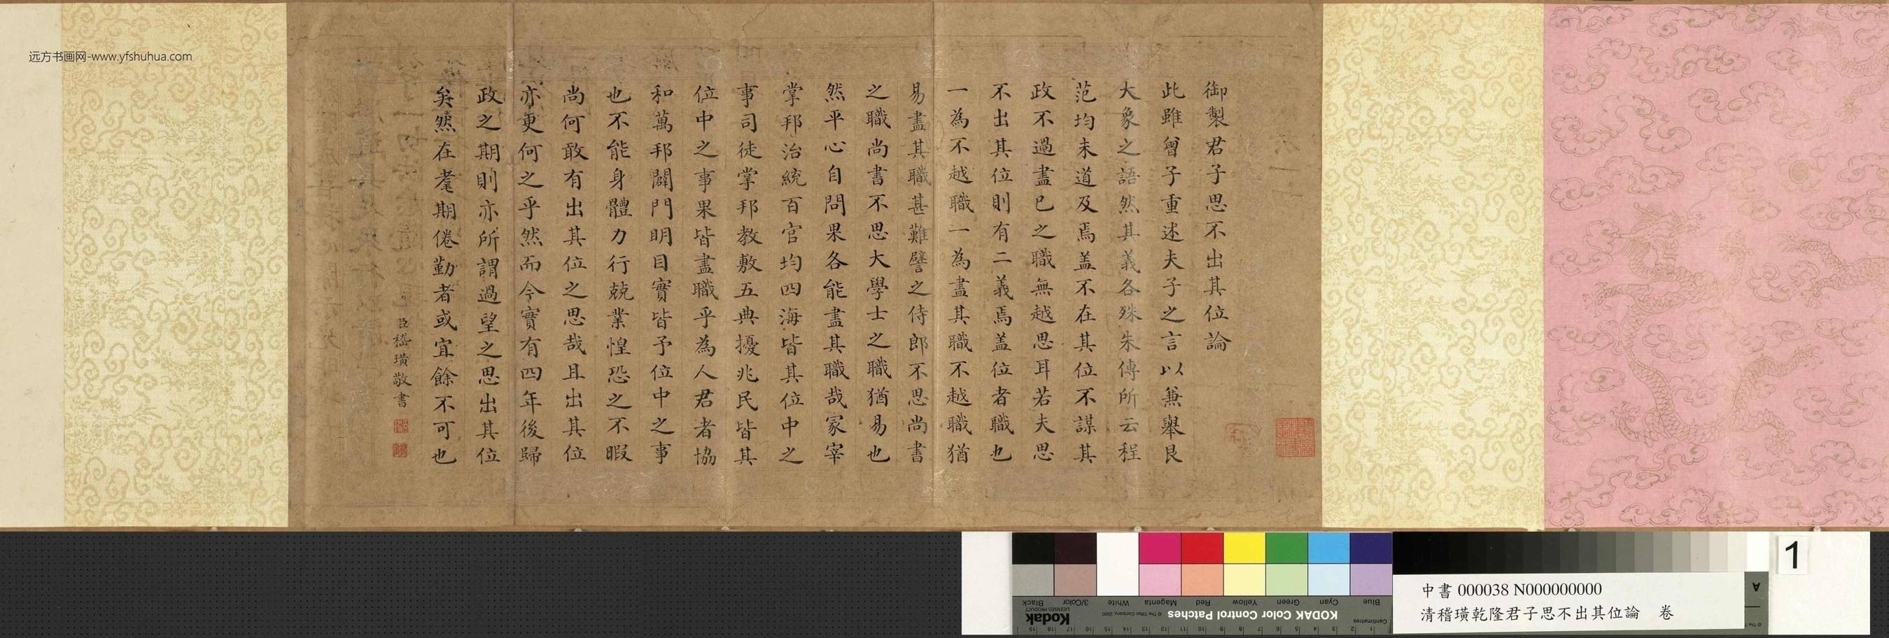 御製君子思不出其位論
此雖曾子重述夫子之言以兼舉艮
大象之語然其義各殊朱傳所云程
范均未道及焉盖不在其位不謀其
政不過盡已之職無越思耳若夫思
不出其位則有二義焉盖位者職也
一為不越職一為盡其職不越職猶
易盡其職甚難譬之侍郎不思尚書
之職尚書不思大學士之職猶易也
然平心自問果各能盡其職哉冢宰
掌邦治統百官均四海皆其位中之
事司徒掌邦教敷五典擾兆民皆其
位中之事果皆盡職乎為人君者協
和萬邦闢門明目實皆予位中之事
也不能身體力行兢業惶恐之不暇
尚何敢有出其位之思哉且出其位
亦更何之乎然而今實有四年後歸
政之期則亦所謂過望之思出其位
矣然在耄期倦勤者或宜餘不可也
臣嵇璜敬書
远方书画网-www.yfshuhua.com
Kodak
KODAK Color Control Patches
Blue Cyan Green Yellow Red Magenta White 3/Color Black
1
A
中書 000038 N000000000
清稽璜乾隆君子思不出其位論 卷